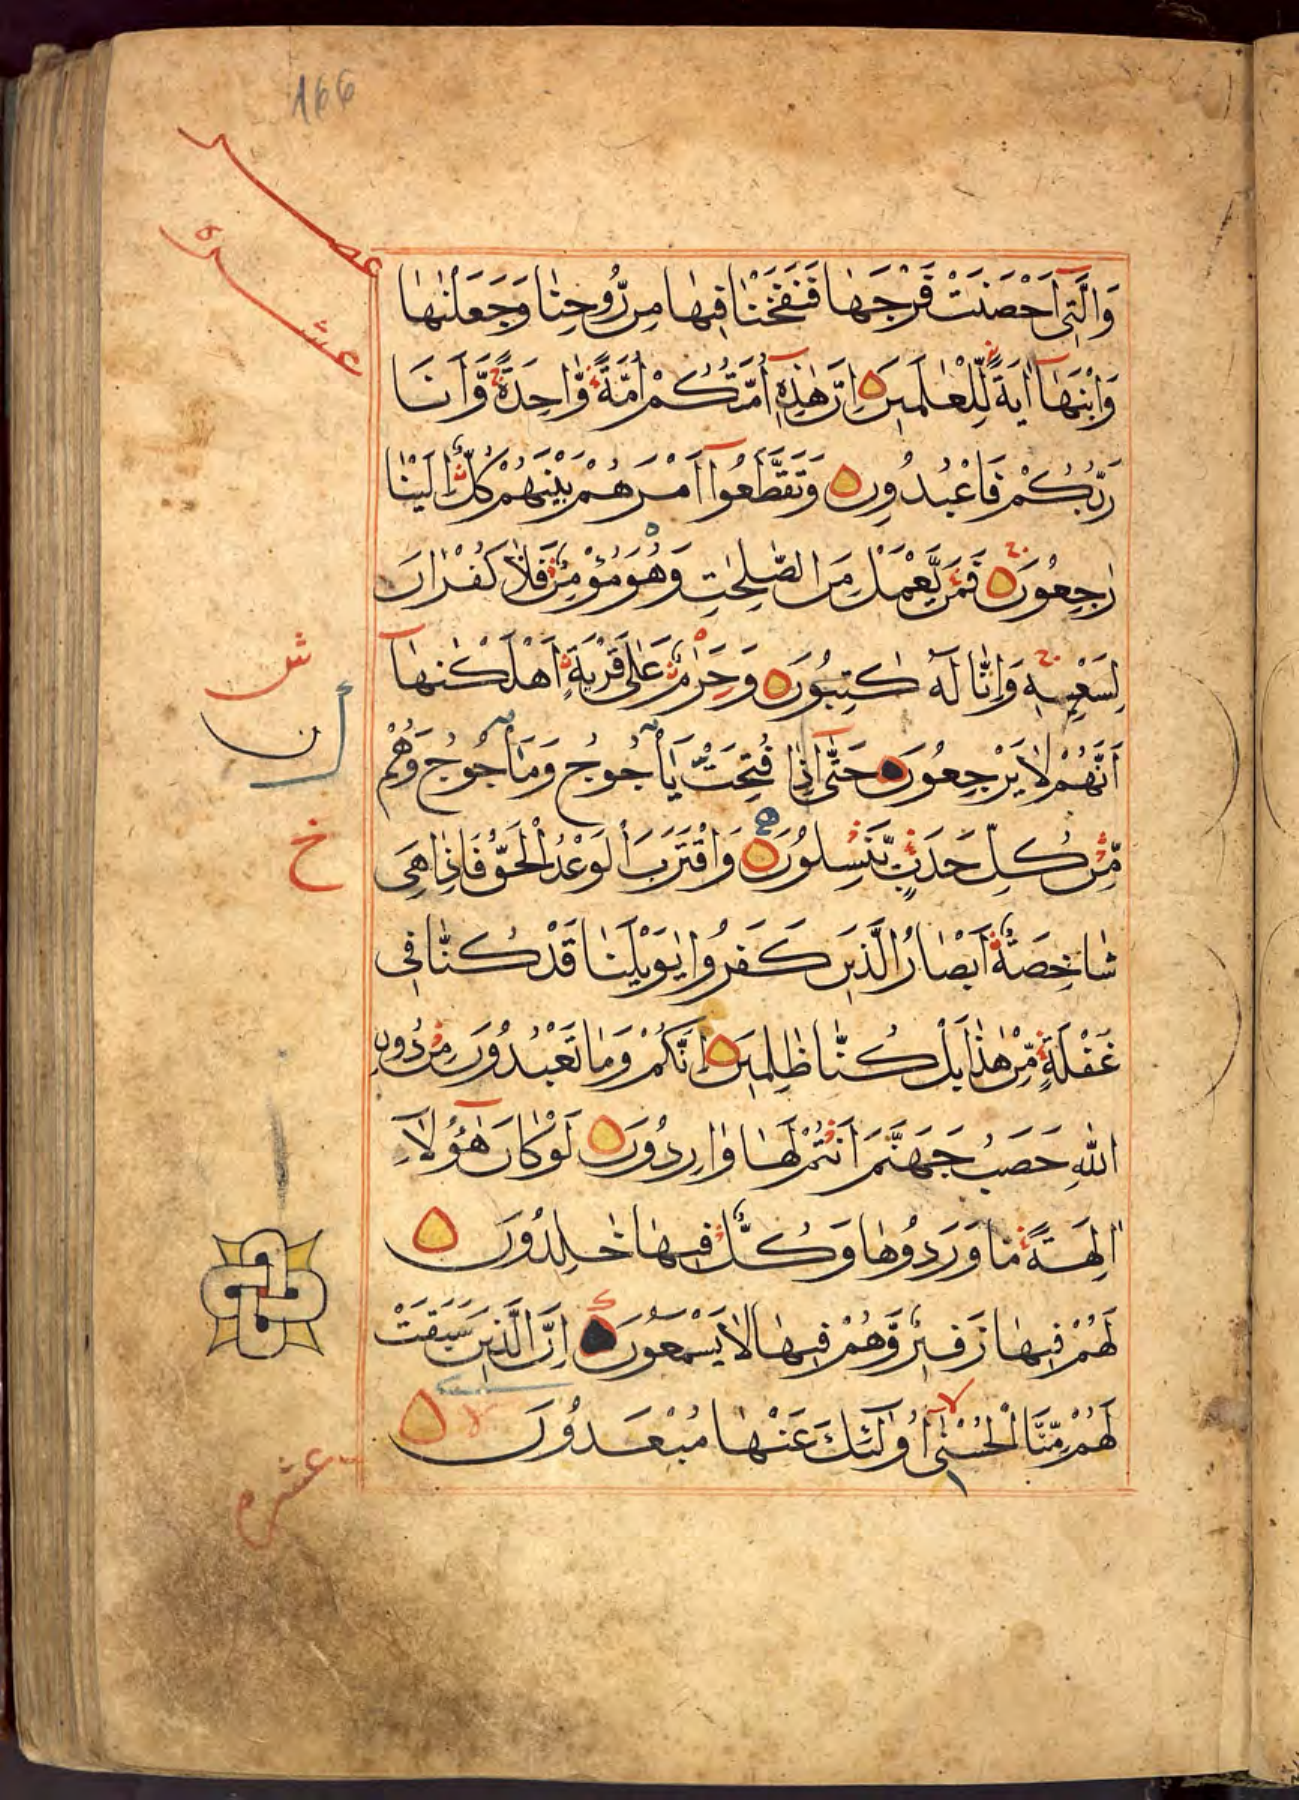 166
عصر
عشره
وَالَّتِي أَحْصَنَتْ فَرْجَهَا فَنَفَخْنَا فِيهَا مِن رُّوحِنَا وَجَعَلْنٰهَا
وَابْنَهَا آيَةً لِّلْعٰلَمِينَ إِنَّ هٰذِهِ أُمَّتُكُمْ أُمَّةً وَّاحِدَةً وَّأَنَا
رَبُّكُمْ فَاعْبُدُونِ وَتَقَطَّعُوا أَمْرَهُمْ بَيْنَهُمْ كُلٌّ إِلَيْنَا
رٰجِعُونَ فَمَن يَّعْمَلْ مِنَ الصّٰلِحٰتِ وَهُوَ مُؤْمِنٌ فَلَا كُفْرَانَ
لِسَعْيِهِ وَإِنَّا لَهُ كٰتِبُونَ وَحَرٰمٌ عَلٰى قَرْيَةٍ أَهْلَكْنٰهَا
ش
أَنَّهُمْ لَا يَرْجِعُونَ حَتّٰى إِذَا فُتِحَتْ يَأْجُوجُ وَمَأْجُوجُ وَهُمْ
مِّن كُلِّ حَدَبٍ يَّنسِلُونَ وَاقْتَرَبَ الْوَعْدُ الْحَقُّ فَإِذَا هِيَ
خ
شَاخِصَةٌ أَبْصَارُ الَّذِينَ كَفَرُوا يٰوَيْلَنَا قَدْ كُنَّا فِي
غَفْلَةٍ مِّنْ هٰذَا بَلْ كُنَّا ظٰلِمِينَ إِنَّكُمْ وَمَا تَعْبُدُونَ مِن دُونِ
اللّٰهِ حَصَبُ جَهَنَّمَ أَنتُمْ لَهَا وَارِدُونَ لَوْ كَانَ هٰؤُلَاءِ
اٰلِهَةً مَّا وَرَدُوهَا وَكُلٌّ فِيهَا خٰلِدُونَ
لَهُمْ فِيهَا زَفِيرٌ وَّهُمْ فِيهَا لَا يَسْمَعُونَ إِنَّ الَّذِينَ سَبَقَتْ
لَهُمْ مِّنَّا الْحُسْنٰى أُولٰئِكَ عَنْهَا مُبْعَدُونَ